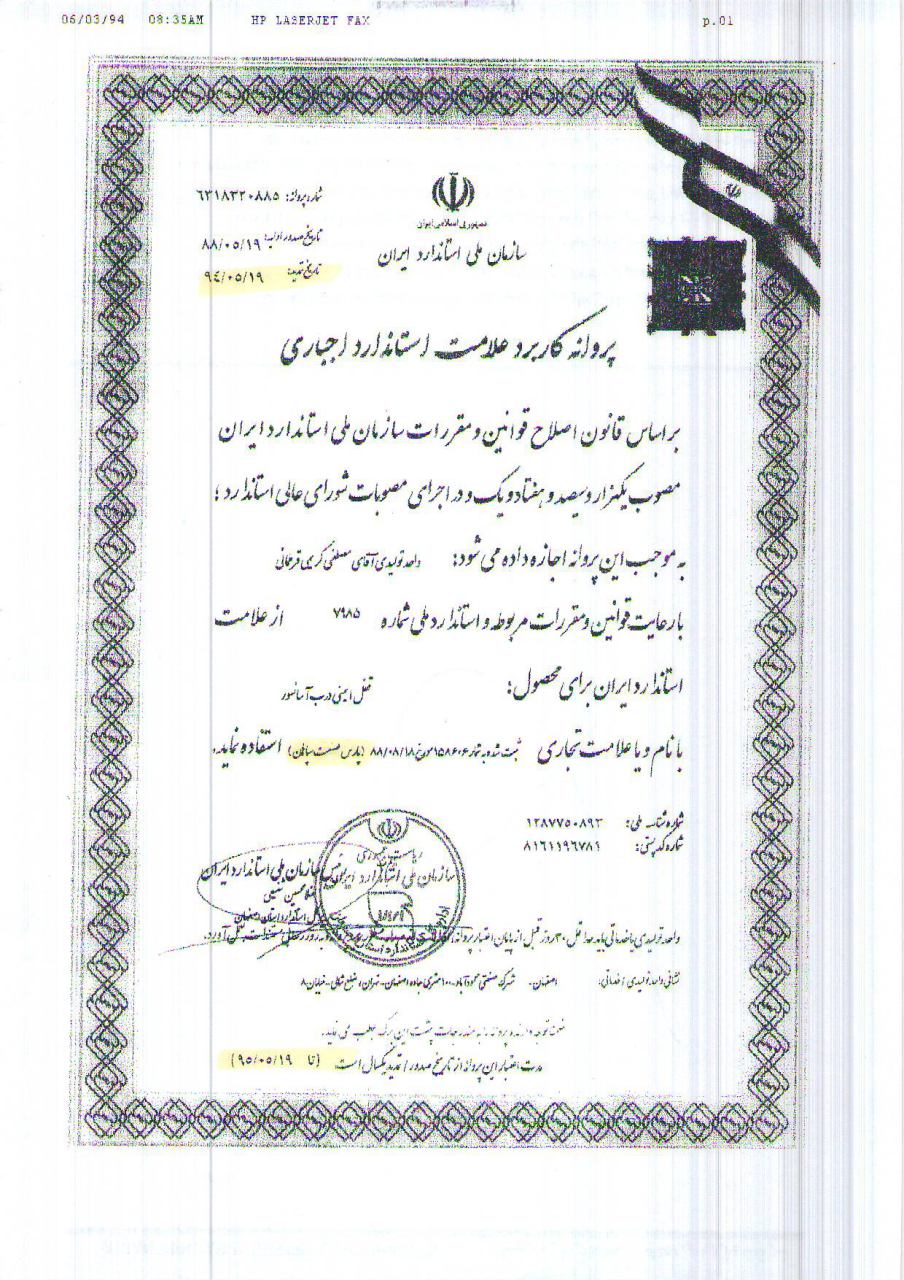 06/03/94 08:35AM HP LASERJET FAX p.01
جمهوری اسلامی ایران
سازمان ملی استاندارد ایران
شماره پروانه: ۶۳۱۸۳۲۰۸۸۵
تاریخ صدور اولیه: ۸۸/۰۵/۱۹
تاریخ تمدید: ۹٤/۰۵/۱۹
پروانه کاربرد علامت استاندارد اجباری
بر اساس قانون اصلاح قوانین و مقررات سازمان ملی استاندارد ایران
مصوب یکهزار و سیصد و هفتاد و یک و در اجرای مصوبات شورای عالی استاندارد ؛
به موجب این پروانه اجازه داده می شود: واحد تولیدی آقای مصطفی کریمی قرطمانی
با رعایت قوانین و مقررات مربوطه و استاندارد ملی شماره ۷۹۸۵ از علامت
استاندارد ایران برای محصول: قفل ایمنی درب آسانسور
با نام و یا علامت تجاری ثبت شده به شماره ۱۵۸۶۰۶ مورخ ۸۸/۰۸/۱۸ (پارس صنعت سپاهان) استفاده نماید.
شماره شناسه ملی: ۱۲۸۷۷۵۰۸۹۳
شماره کد پستی: ۸۱۶۱۱۹۶۷۸۱
ریاست جمهوری
سازمان ملی استاندارد ایران
سازمان ملی استاندارد ایران
استاندارد استان اصفهان
واحد تولیدی یا خدماتی باید حداقل ۳۰ روز قبل از پایان اعتبار پروانه
نشانی واحد تولیدی / خدماتی: اصفهان- شهرک صنعتی محمودآباد- ۱۰۰ متری جاده اصفهان- تهران، ضلع شمالی- خیابان ۸
ضمناً توجه دارنده پروانه را به مندرجات پشت این برگ جلب می نماید.
مدت اعتبار این پروانه از تاریخ صدور / تمدید یکسال است (تا ۹۵/۰۵/۱۹)